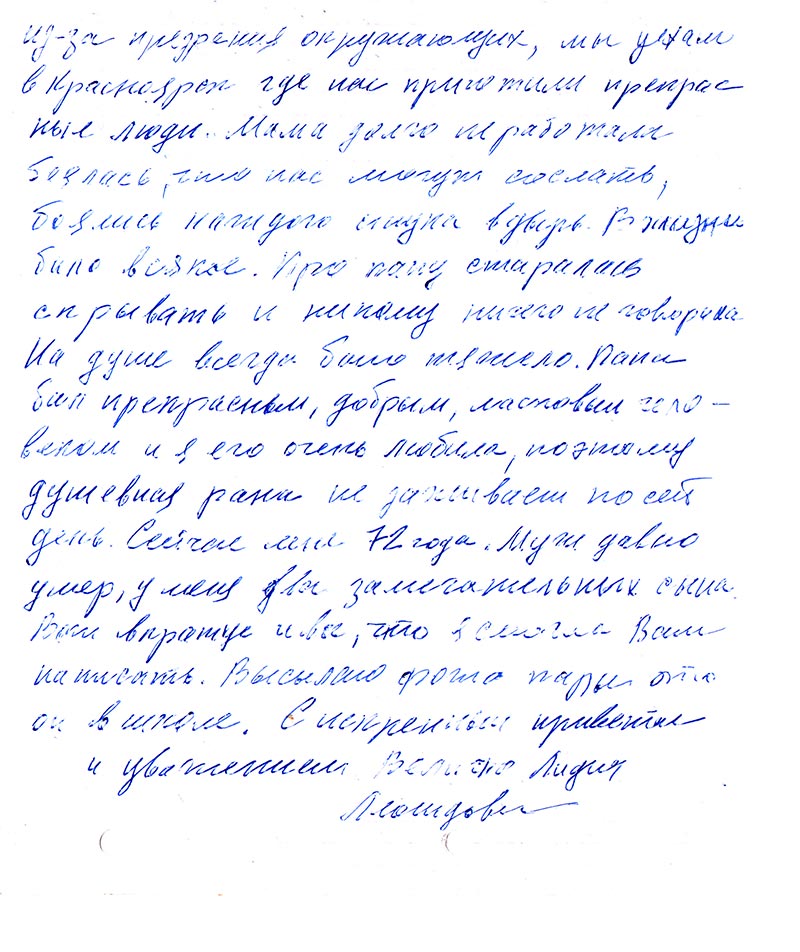 из-за презрения окружающих, мы уехали
в Красноярск где нас приютили прекрас
ные люди. Мама долго не работала
боялась, что нас могут сослать,
боялись каждого стука в дверь. В жизни
было всякое. Про папу старалась
скрывать и никому ничего не говорила
На душе всегда было тяжело. Папа
был прекрасным, добрым, ласковым чело-
веком и я его очень любила, поэтому
душевная рана не заживает по сей
день. Сейчас мне 72 года. Муж давно
умер, у меня два замечательных сына.
Вот вкратце и все, что я смогла Вам
написать. Высылаю фото папы это
он в школе. С искренним приветом
и уважением Лидия
Леонидовна